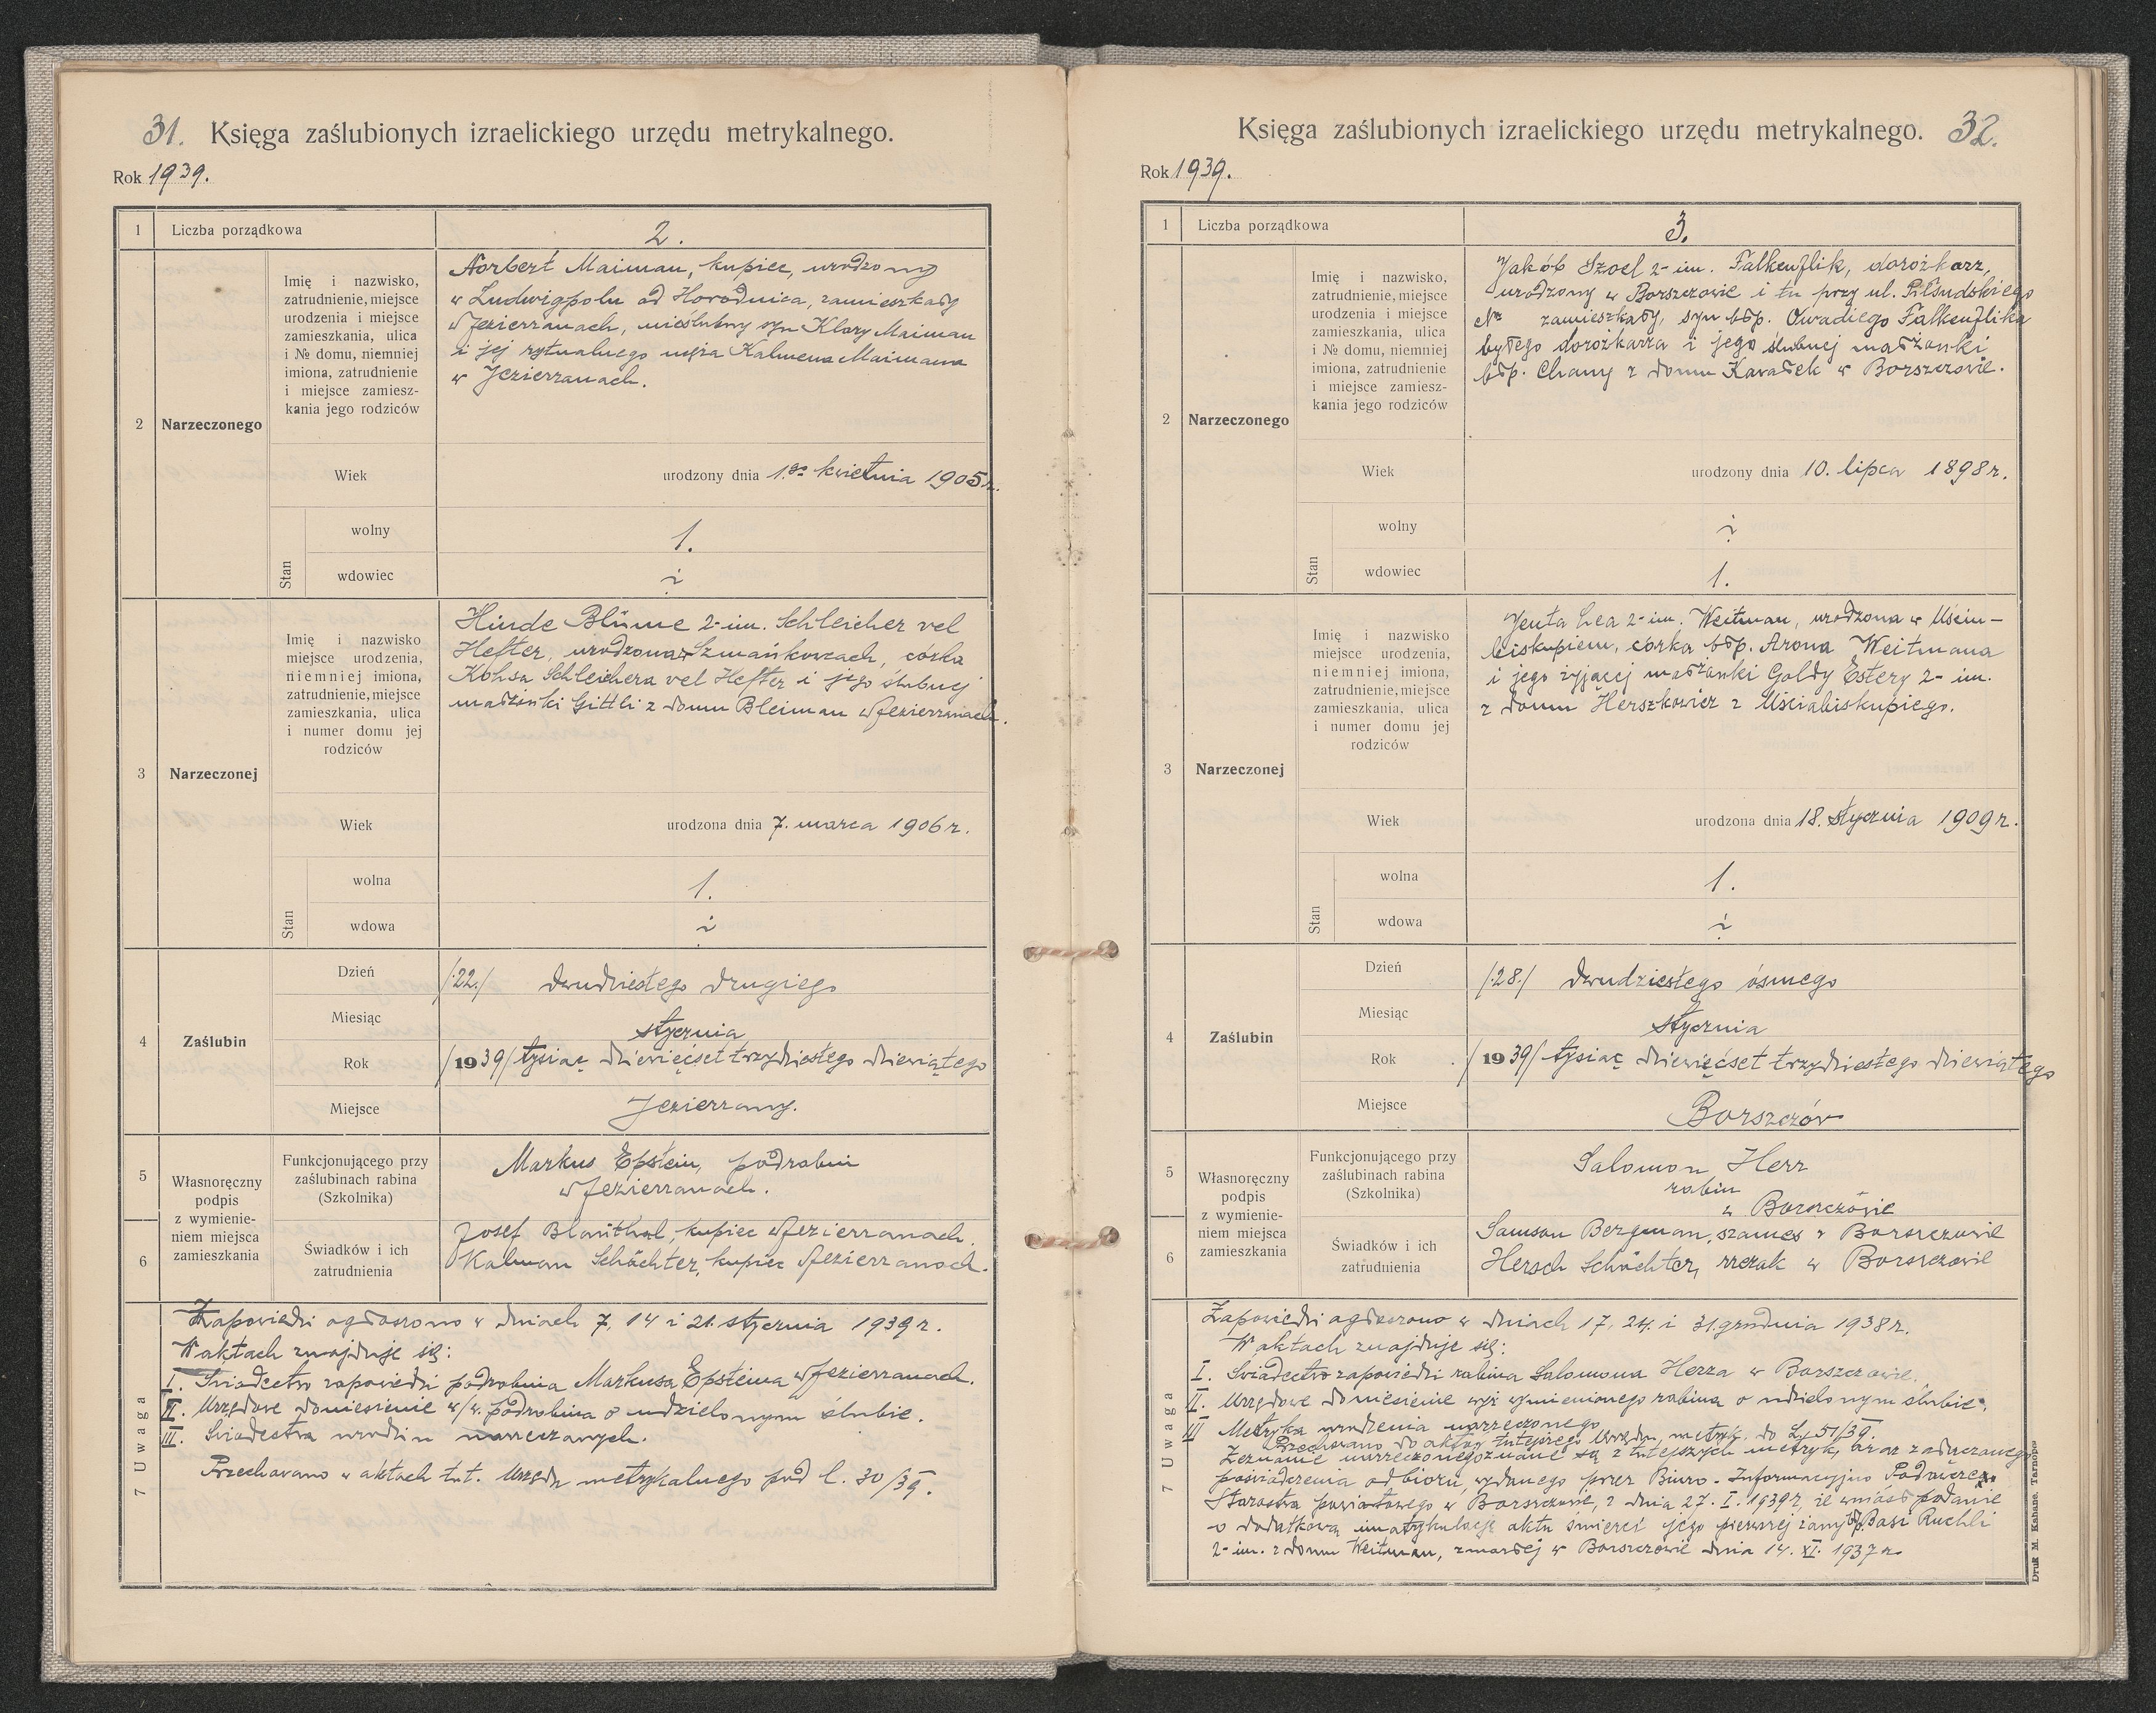 31. Księga zaślubionych izraelickiego urzędu metrykalnego.
Rok 1939.
1 Liczba porządkowa 2.
2 Narzeczonego
Imię i nazwisko,
zatrudnienie, miejsce
urodzenia i miejsce
zamieszkania, ulica
i № domu, niemniej
imiona, zatrudnienie
i miejsce zamiesz-
kania jego rodziców
Norbert Maiman, kupiec, urodzony
w Ludwigpolu ad Horodnica, zamieszkały
w Jezierzanach, nieślubny syn Klary Maiman
i jej rytualnego męża Kalmena Maimana
w Jezierzanach.
Wiek urodzony dnia 1.go kwietnia 1905 r.
Stan
wolny 1.
wdowiec
3 Narzeczonej
Imię i nazwisko
miejsce urodzenia,
niemniej imiona,
zatrudnienie, miejsce
zamieszkania, ulica
i numer domu jej
rodziców
Hinde Blüme 2-im. Schleicher vel
Hefter, urodzona w Szmańkowcach, córka
Schleichera vel Hefter i jego ślubnej
małżonki Gittli z domu Bleiman w Jezierzanach.
Wiek urodzona dnia 7. marca 1906 r.
Stan
wolna 1.
wdowa
4 Zaślubin
Dzień /:22./ dwudziestego drugiego
Miesiąc stycznia
Rok /1939/ tysiąc dziewięćset trzydziestego dziewiątego
Miejsce Jezierzany.
Własnoręczny
podpis
z wymienie-
niem miejsca
zamieszkania
5 Funkcjonującego przy
zaślubinach rabina
(Szkolnika)
Markus Epstein, podrabin
w Jezierzanach.
6 Świadków i ich
zatrudnienia
Josef Blauthal, kupiec w Jezierzanach.
Kalman Schächter, kupiec w Jezierzanach.
7 Uwaga
Zapowiedzi ogłoszono w dniach 7, 14 i 21. stycznia 1939 r.
W aktach znajduje się:
I. Świadectwo zapowiedzi podrabina Markusa Epsteina w Jezierzanach.
II. Urzędowe doniesienie w/w. podrabina o udzielonym ślubie.
III. Świadectwa urodzin narzeczonych.
Przechowano w aktach tut. Urzędu metrykalnego pod l. 30/39.
Księga zaślubionych izraelickiego urzędu metrykalnego. 32.
Rok 1939.
1 Liczba porządkowa 3.
2 Narzeczonego
Imię i nazwisko,
zatrudnienie, miejsce
urodzenia i miejsce
zamieszkania, ulica
i № domu, niemniej
imiona, zatrudnienie
i miejsce zamiesz-
kania jego rodziców
Jakób Szoel 2-im. Falkenflik, dorożkarz,
urodzony w Borszczowie i tu przy ul. Piłsudskiego
Nr zamieszkały, syn błp. Owadiego Falkenflika
byłego dorożkarza i jego ślubnej małżonki
błp. Chany z domu Kawałek w Borszczowie.
Wiek urodzony dnia 10. lipca 1898 r.
Stan
wolny
wdowiec 1.
3 Narzeczonej
Imię i nazwisko
miejsce urodzenia,
niemniej imiona,
zatrudnienie, miejsce
zamieszkania, ulica
i numer domu jej
rodziców
Jenta Lea 2-im. Weitman, urodzona w Uściu-
biskupiem, córka błp. Arona Weitmana
i jego żyjącej małżonki Goldy Estery 2-im.
z domu Herszkowicz z Uściabiskupiego.
Wiek urodzona dnia 18. stycznia 1909 r.
Stan
wolna 1.
wdowa
4 Zaślubin
Dzień /:28./ dwudziestego ósmego
Miesiąc stycznia
Rok /1939/ tysiąc dziewięćset trzydziestego dziewiątego
Miejsce Borszczów
Własnoręczny
podpis
z wymienie-
niem miejsca
zamieszkania
5 Funkcjonującego przy
zaślubinach rabina
(Szkolnika)
Salomon Herz
rabin
w Borszczowie
6 Świadków i ich
zatrudnienia
Samson Bergman, szames w Borszczowie
Hersch Schächter, rzezak w Borszczowie
7 Uwaga
Zapowiedzi ogłoszono w dniach 17, 24. i 31. grudnia 1938 r.
W aktach znajduje się:
I. Świadectwo zapowiedzi rabina Salomona Herza w Borszczowie.
II. Urzędowe doniesienie wyż wymienionego rabina o udzielonym ślubie.
III Metryka urodzenia narzeczonego
Przechowano do aktów tutejszego Urzędu metryk. do L. 51/39.
Zeznanie narzeczonego znane są z tutejszych metryk, oraz załączonego
poświadczenia odbioru, wydanego przez Biuro-Informacyjno Podawcze
Starostwa powiatowego w Borszczowie, z dnia 27. I. 1939 r, że wniósł podanie
o dodatkową imatrykulację aktu śmierci jego pierwszej żony błp. Basi Ruchli
2-im. z domu Weitman, zmarłej w Borszczowie dnia 14. XI. 1937 r.
Druk M. Kahane, Tarnopol